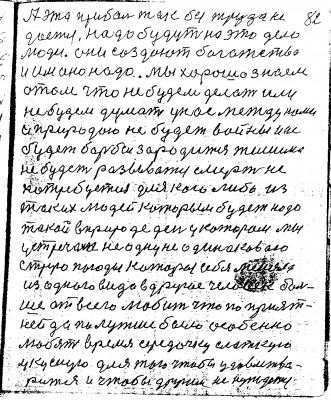 А эта прибал так бы труда не 82
дается, надо будут на это дело
люди. они создают богатство
и им оно надо. мы хорошо знаем
о том что не будем делат или
не будем думат у нас между нами
и природою не будет войны и не
будет борби зародится тишина
не будет развиватся смерть не
потребуется для кого либо. из
таких людей которым будет надо
такой в природе ден у котором мы
устречаем не одну не одинаковаю
погоды которая себя
из одного вида в другие человек бол-
ше от всего любит что по прият-
ней да полутше было особенно
любят время середочку сладкую
укусную для того чтобы удовлетво-
рится и чтобы другии не нуждалис